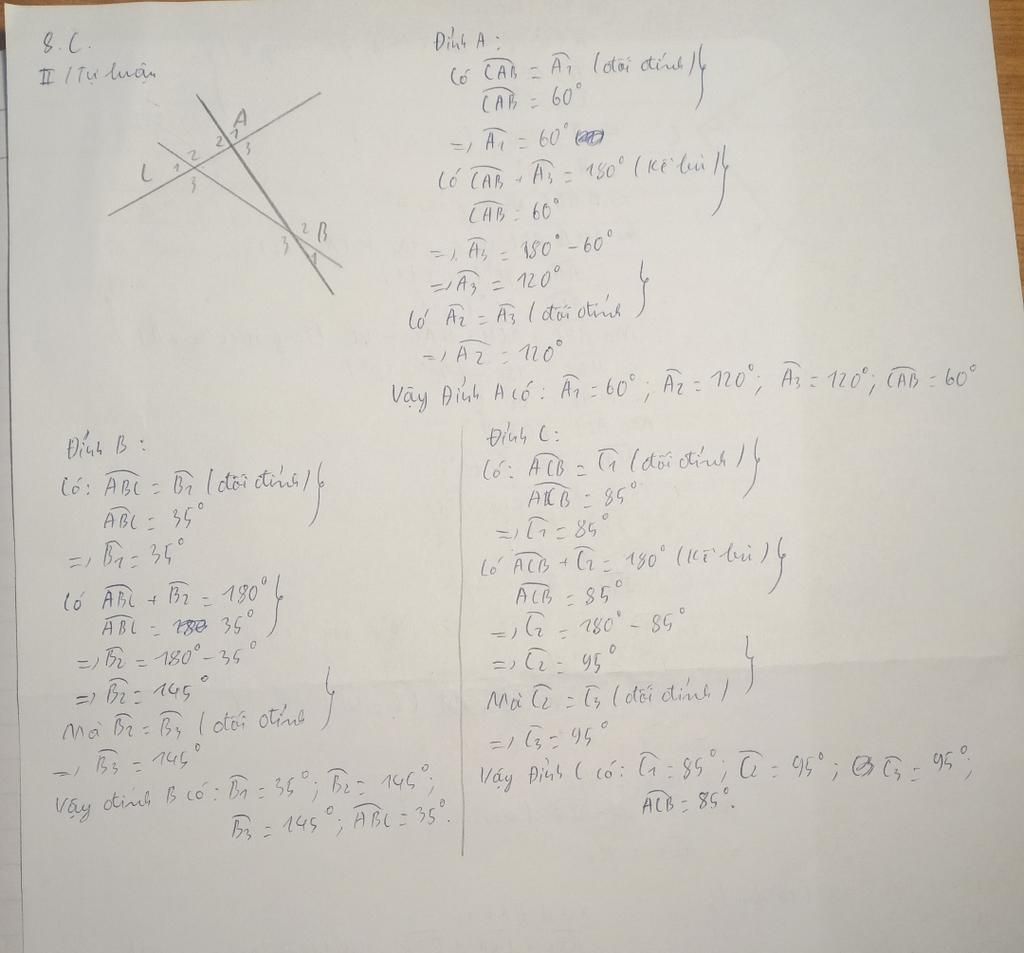 8.C.
II / Tự luận
A
1
2
3
C
2
1
3
B
2
3
1
Đỉnh A:
Có CAB = A1 (đối đỉnh)
CAB = 60°
=> A1 = 60°
Có CAB + A3 = 180° (Kề bù)
CAB = 60°
=> A3 = 180° - 60°
=> A3 = 120°
Có A2 = A3 (đối đỉnh
=> A2 = 120°
Vậy Đỉnh A có: A1 = 60°; A2 = 120°; A3 = 120°; CAB = 60°
Đỉnh B:
Có: ABC = B1 (đối đỉnh)
ABC = 35°
=> B1 = 35°
Có ABC + B2 = 180°
ABC = 35°
=> B2 = 180° - 35°
=> B2 = 145°
Mà B2 = B3 (đối đỉnh
=> B3 = 145°
Vậy đỉnh B có: B1 = 35°; B2 = 145°;
B3 = 145°; ABC = 35°.
Đỉnh C:
Có: ACB = C1 (đối đỉnh)
ACB = 85°
=> C1 = 85°
Có ACB + C2 = 180° (Kề bù)
ACB = 85°
=> C2 = 180° - 85°
=> C2 = 95°
Mà C2 = C3 (đối đỉnh)
=> C3 = 95°
Vậy Đỉnh C có: C1 = 85°; C2 = 95°; C3 = 95°;
ACB = 85°.